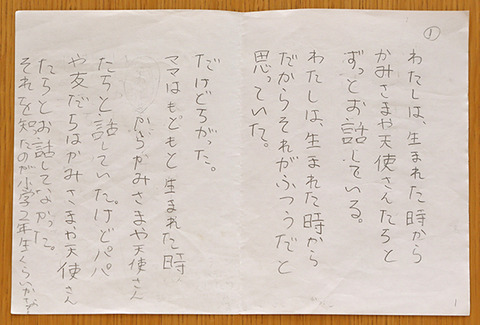 ①
わたしは、生まれた時から
かみさまや天使さんたちと
ずっとお話している。
わたしは、生まれた時から
だからそれがふつうだと
思っていた。
だけどちがった。
ママはもともと生まれた時
からかみさまや天使さん
たちと話していた。けどパパ
や友だちはかみさまや天使さん
たちとお話してなかった。
それを知ったのが小学2年生くらいかな。
1